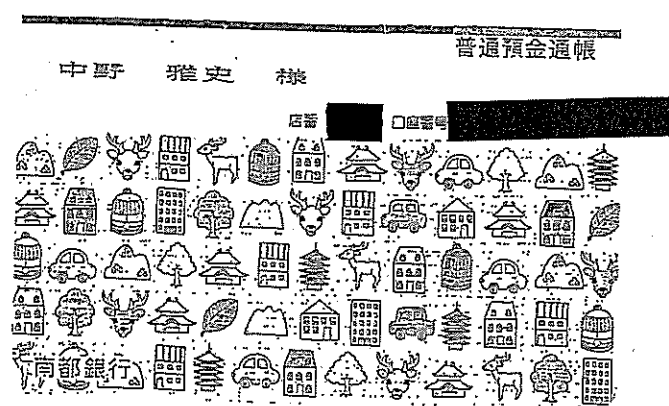 普通預金通帳
中野 雅史 様
店番 口座番号
南都銀行